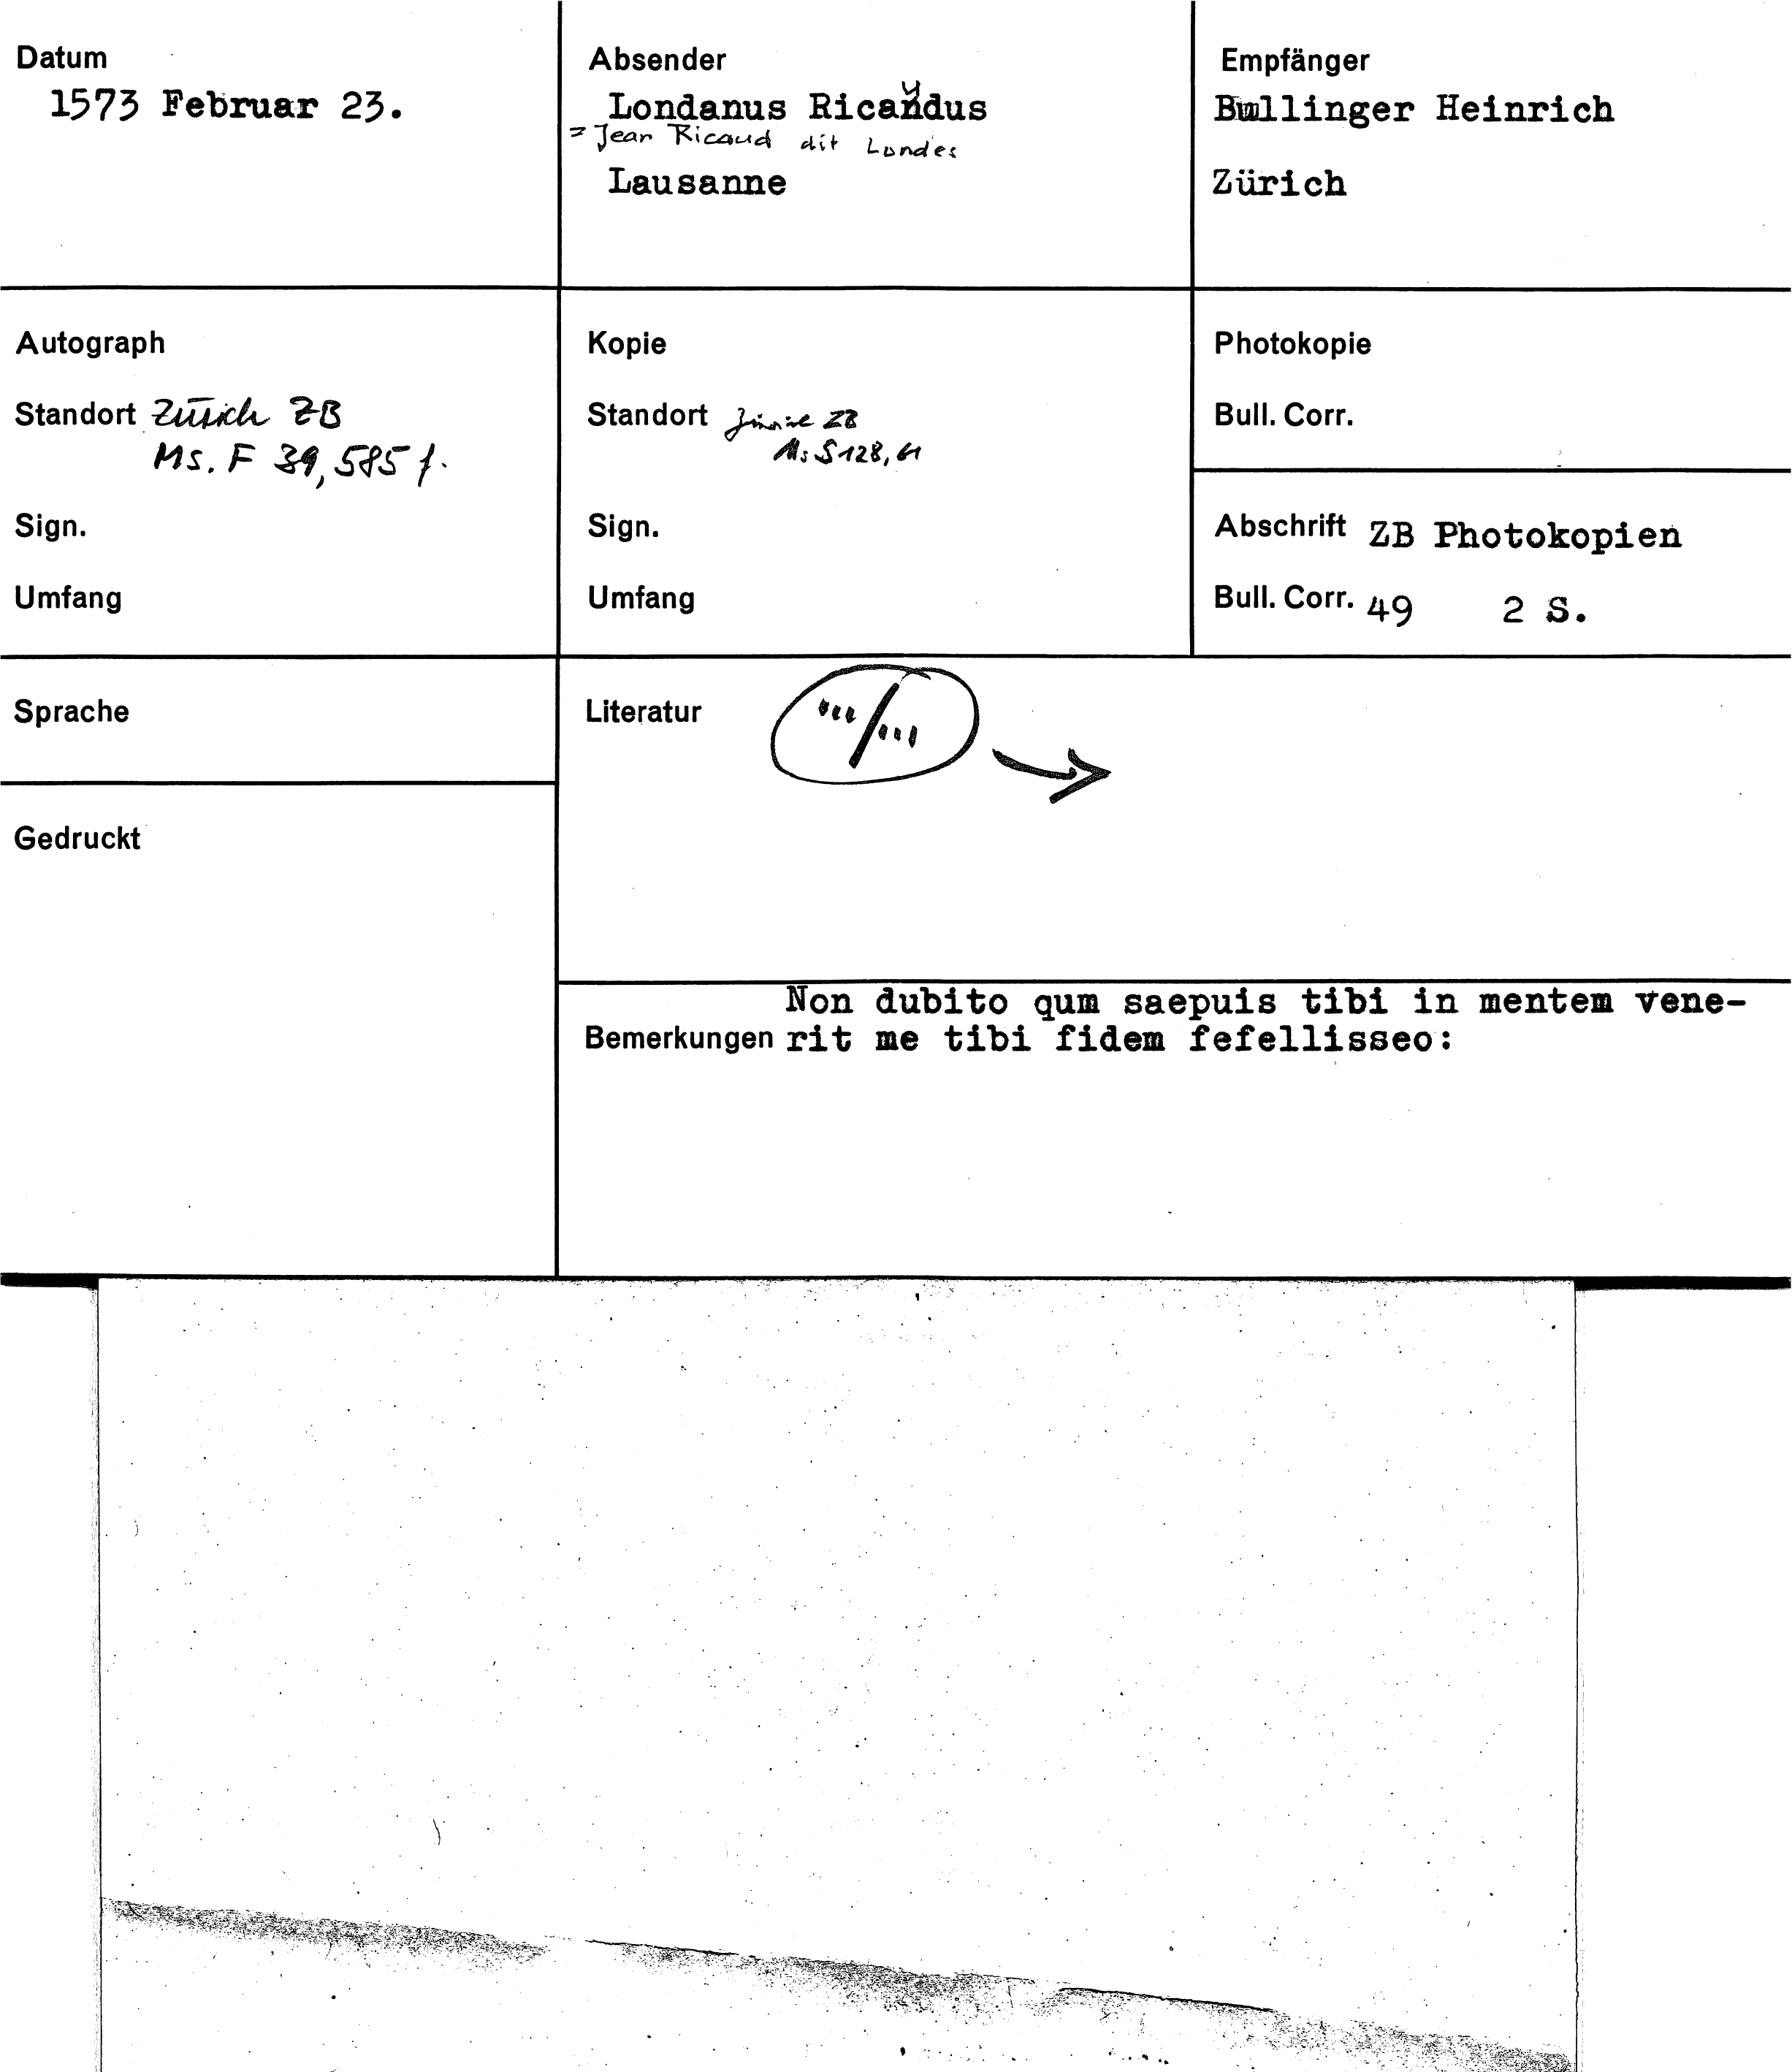 Datum
1573 Februar 23.
Absender
Londanus Ricaudus
= Jean Ricaud dit Londes
Lausanne
Empfänger
Bullinger Heinrich
Zürich
Autograph
Standort Zürich ZB
Ms. F 39, 585 f.
Sign.
Umfang
Kopie
Standort Zürich ZB
Ms S 128, 61
Sign.
Umfang
Photokopie
Bull. Corr.
Abschrift ZB Photokopien
Bull. Corr. 49 2 S.
Sprache
Gedruckt
Literatur
Bemerkungen
Non dubito qum saepuis tibi in mentem vene-
rit me tibi fidem fefellisseo: